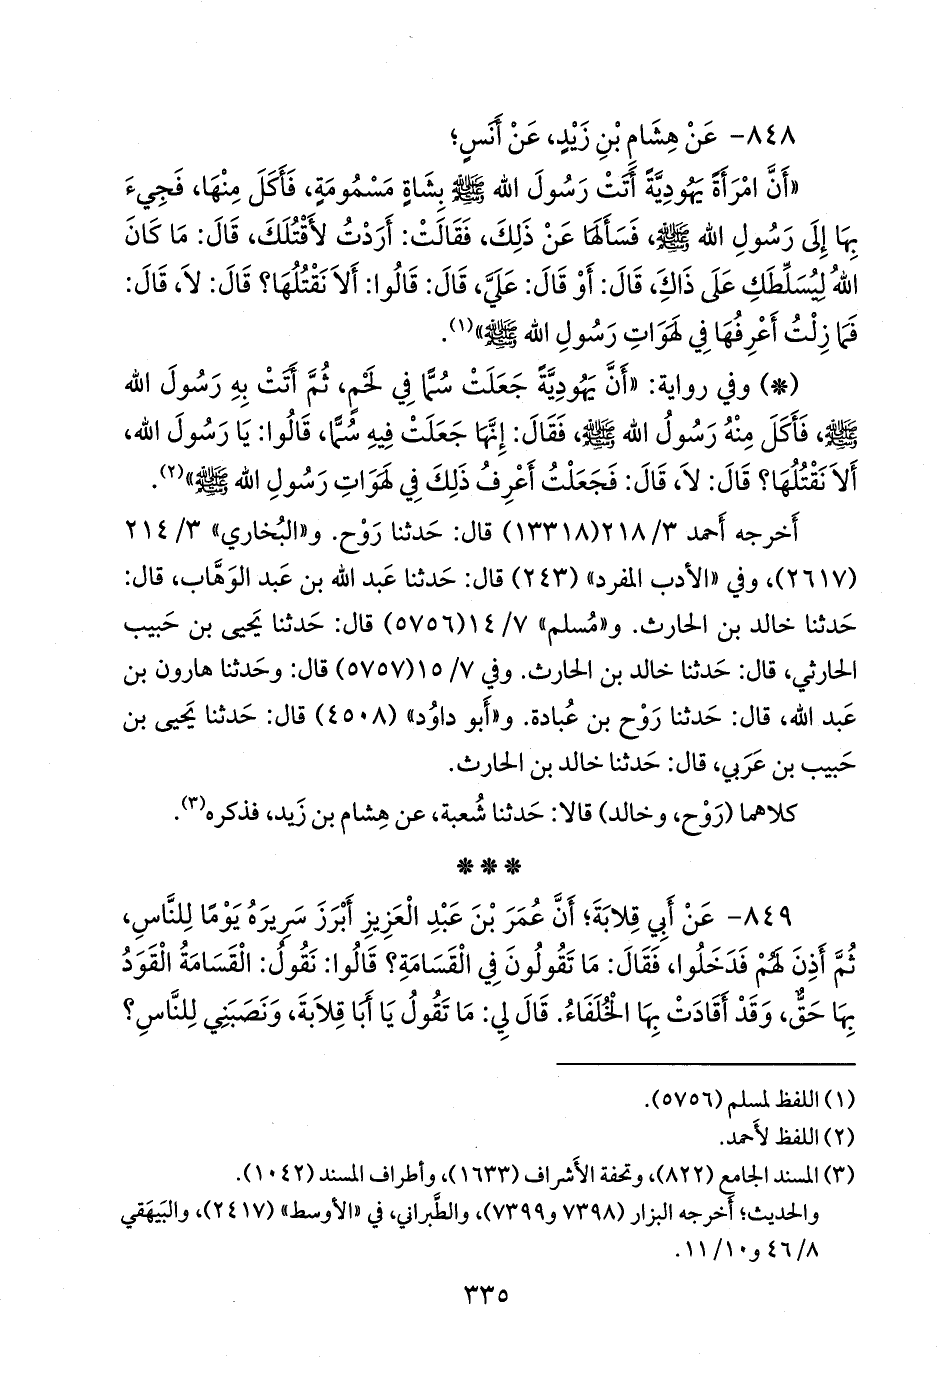 ٨٤٨- عَنْ هِشَامِ بْنِ زَيْدٍ، عَنْ أَنَسٍ؛
«أَنَّ امْرَأَةً يَهُودِيَّةً أَتَتْ رَسُولَ الله ﷺ بِشَاةٍ مَسْمُومَةٍ، فَأَكَلَ مِنْهَا، فَجِيءَ
بِهَا إِلَى رَسُولِ الله ﷺ، فَسَأَلَهَا عَنْ ذَلِكَ، فَقَالَتْ: أَرَدْتُ لأَقْتُلَكَ، قَالَ: مَا كَانَ
اللهُ لِيُسَلِّطَكِ عَلَى ذَاكِ، قَالَ: أَوْ قَالَ: عَلَيَّ، قَالَ: قَالُوا: أَلاَ نَقْتُلُهَا؟ قَالَ: لاَ، قَالَ:
فَمَا زِلْتُ أَعْرِفُهَا فِي لَهَوَاتِ رَسُولِ الله ﷺ»(١).
(*) وفي رواية: «أَنَّ يَهُودِيَّةً جَعَلَتْ سُمًّا فِي لَحْمٍ، ثُمَّ أَتَتْ بِهِ رَسُولَ الله
ﷺ، فَأَكَلَ مِنْهُ رَسُولُ الله ﷺ، فَقَالَ: إِنَّهَا جَعَلَتْ فِيهِ سُمًّا، قَالُوا: يَا رَسُولَ الله،
أَلاَ نَقْتُلُهَا؟ قَالَ: لاَ، قَالَ: فَجَعَلْتُ أَعْرِفُ ذَلِكَ فِي لَهَوَاتِ رَسُولِ الله ﷺ»(٢).
أَخرجه أَحمد ٣/ ٢١٨(١٣٣١٨) قال: حَدثنا رَوْح. و«البُخاري» ٣/ ٢١٤
(٢٦١٧)، وفي «الأدب المفرد» (٢٤٣) قال: حَدثنا عَبد الله بن عَبد الوَهَّاب، قال:
حَدثنا خالد بن الحارث. و«مُسلم» ٧/ ١٤(٥٧٥٦) قال: حَدثنا يَحيى بن حَبيب
الحارثي، قال: حَدثنا خالد بن الحارث. وفي ٧/ ١٥(٥٧٥٧) قال: وحَدثنا هارون بن
عَبد الله، قال: حَدثنا رَوْح بن عُبادة. و«أَبو داوُد» (٤٥٠٨) قال: حَدثنا يَحيى بن
حَبيب بن عَرَبي، قال: حَدثنا خالد بن الحارث.
كلاهما (رَوْح، وخالد) قالا: حَدثنا شُعبة، عن هِشام بن زَيد، فذكره(٣).
* * *
٨٤٩- عَنْ أَبِي قِلاَبَةَ؛ أَنَّ عُمَرَ بْنَ عَبْدِ الْعَزِيزِ أَبْرَزَ سَرِيرَهُ يَوْمًا لِلنَّاسِ،
ثُمَّ أَذِنَ لَهُمْ فَدَخَلُوا، فَقَالَ: مَا تَقُولُونَ فِي الْقَسَامَةِ؟ قَالُوا: نَقُولُ: الْقَسَامَةُ الْقَوَدُ
بِهَا حَقٌّ، وَقَدْ أَقَادَتْ بِهَا الْخُلَفَاءُ. قَالَ لِي: مَا تَقُولُ يَا أَبَا قِلاَبَةَ، وَنَصَبَنِي لِلنَّاسِ؟
(١) اللفظ لمسلم (٥٧٥٦).
(٢) اللفظ لأَحمد.
(٣) المسند الجامع (٨٢٢)، وتحفة الأَشراف (١٦٣٣)، وأطراف المسند (١٠٤٢).
والحديث؛ أَخرجه البزار (٧٣٩٨ و٧٣٩٩)، والطَّبراني، في «الأوسط» (٢٤١٧)، والبَيهَقي
٨/ ٤٦ و١٠/ ١١.
٣٣٥